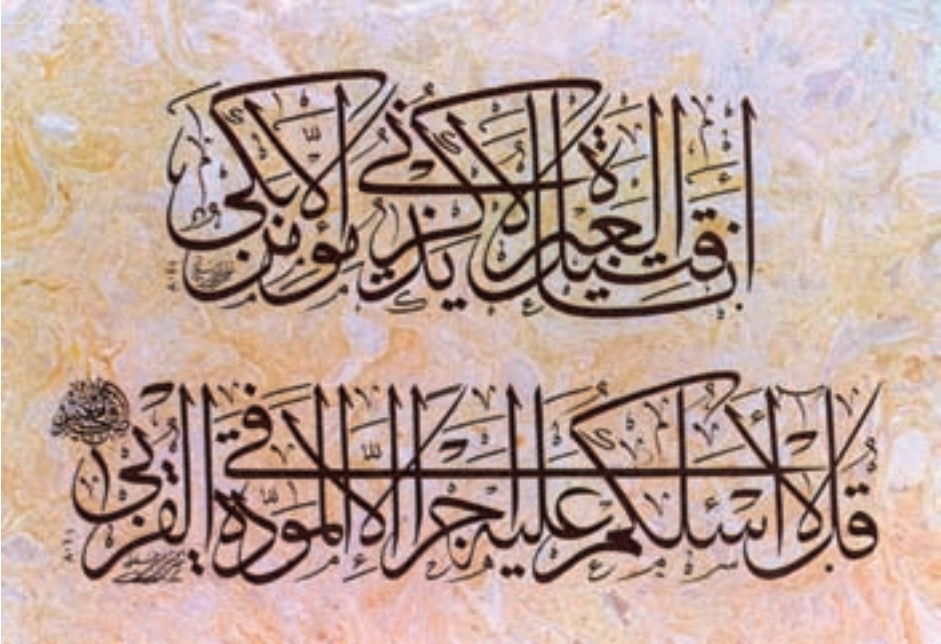 انا قتيل العبرة لا يذكرني مؤمن الا بكى
قل لا أسئلكم عليه اجرا الا المودة في القربى